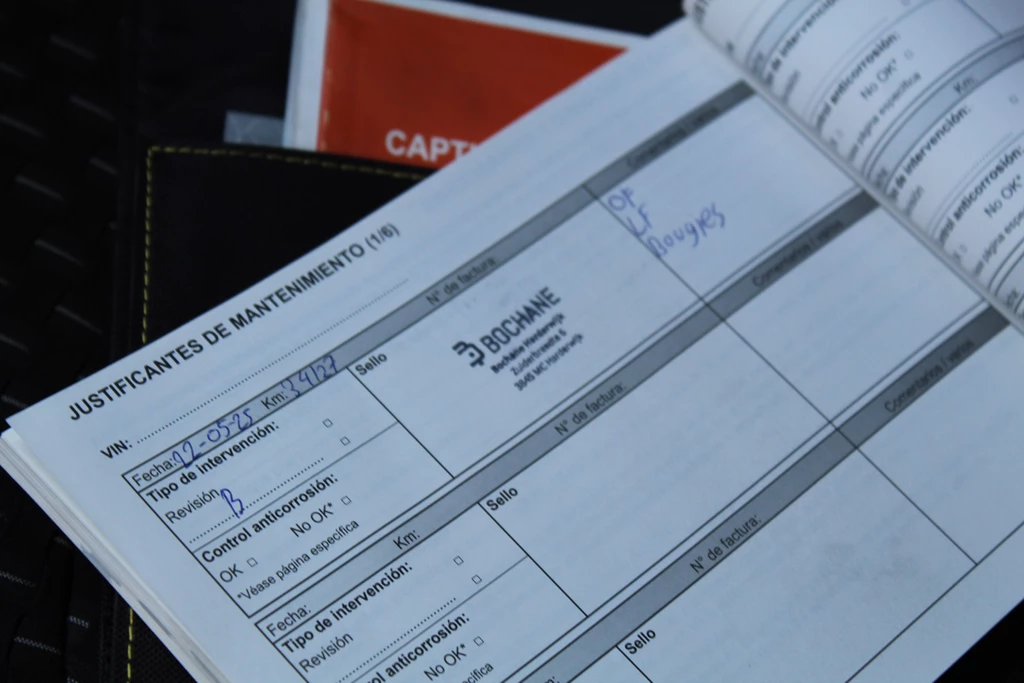 CAPT
JUSTIFICANTES DE MANTENIMIENTO (1/6)
VIN:
Fecha: 12-05-25 Km: 34127 N° de factura:
Tipo de intervención:
Revisión
B
Control anticorrosión:
OK □ No OK* □
*Véase página específica
Sello
BOCHANE
Bochane Harderwijk
Zuiderbreedte 6
3845 MC Harderwijk
OF
LF
Bougies
Fecha: Km: N° de factura: Comentarios / varios
Tipo de intervención:
Revisión
anticorrosión:
No OK* □
Sello
N° de factura: Comentarios / varios
Sello
de intervención:
anticorrosión:
No OK* □
página específica
Km:
de intervención:
anticorrosión:
No OK*